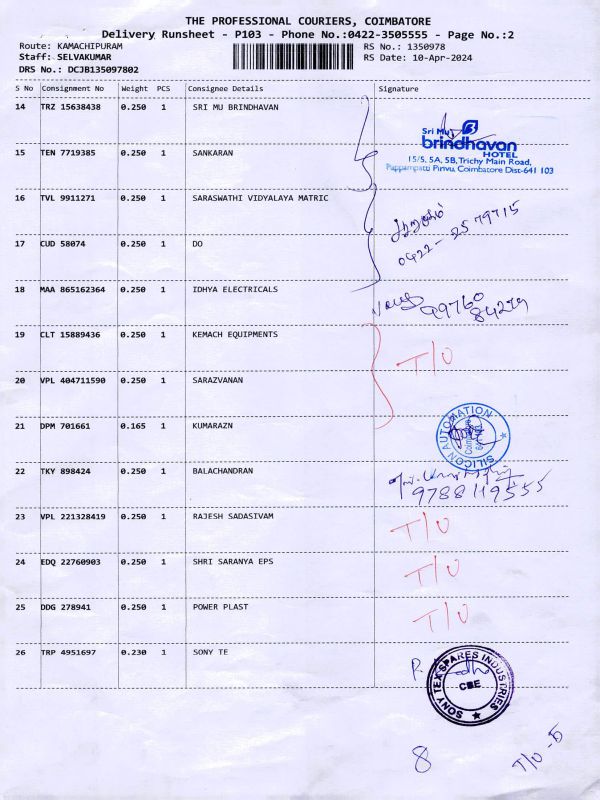 THE PROFESSIONAL COURIERS, COIMBATORE
Delivery Runsheet - P103 - Phone No.:0422-3505555 - Page No.:2
Route: KAMACHIPURAM RS No.: 1350978
Staff: SELVAKUMAR RS Date: 10-Apr-2024
DRS No.: DCJB135097802
S No Consignment No Weight PCS Consignee Details Signature
14 TRZ 15638438 0.250 1 SRI MU BRINDHAVAN
Sri Mu
brindhavan
HOTEL
15/5, 5A, 5B, Trichy Main Road,
Pappampatti Pirivu, Coimbatore Dist-641 103
15 TEN 7719385 0.250 1 SANKARAN
16 TVL 9911271 0.250 1 SARASWATHI VIDYALAYA MATRIC
0422-2579715
17 CUD 58074 0.250 1 DO
18 MAA 865162364 0.250 1 IDHYA ELECTRICALS
99760
84279
19 CLT 15889436 0.250 1 KEMACH EQUIPMENTS
T/O
20 VPL 404711590 0.250 1 SARAZVANAN
21 DPM 701661 0.165 1 KUMARAZN
SILICON AUTOMATION
22 TKY 898424 0.250 1 BALACHANDRAN
9788119555
23 VPL 221328419 0.250 1 RAJESH SADASIVAM T/O
24 EDQ 22760903 0.250 1 SHRI SARANYA EPS T/O
25 DDG 278941 0.250 1 POWER PLAST T/O
26 TRP 4951697 0.230 1 SONY TE
SONY TEX SPARES INDUSTRIES
CBE
8 T/O-5